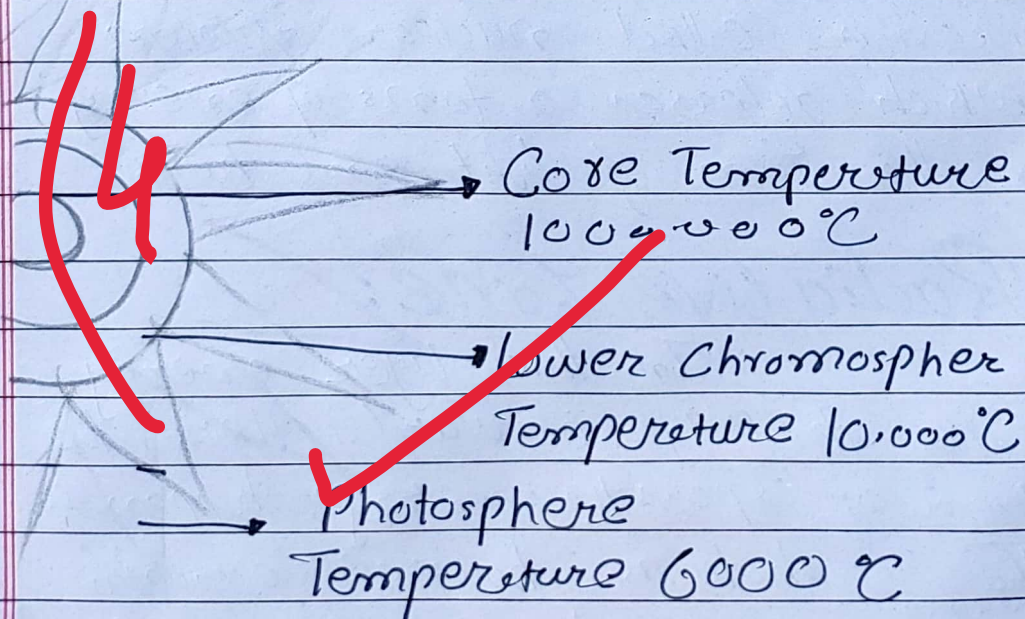 (4
Core Temperature
1000000°C
Lower Chromospher
Temperature 10.000°C
Photosphere
Temperature 6000°C